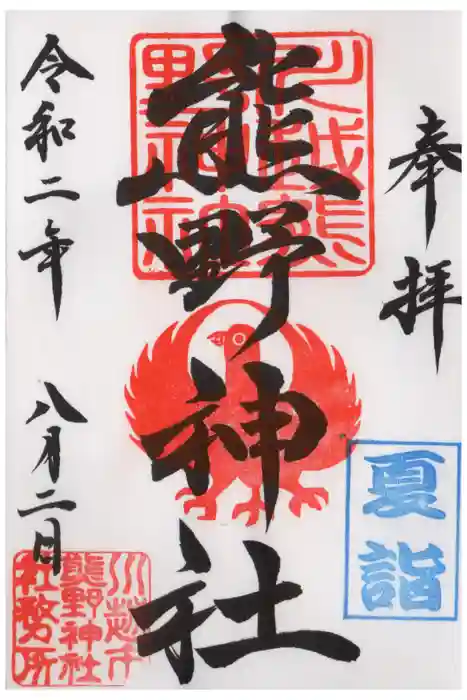 奉拝
夏詣
川越熊
野神社
熊野神社
令和二年
八月二日
川越市
熊野神社
社務所